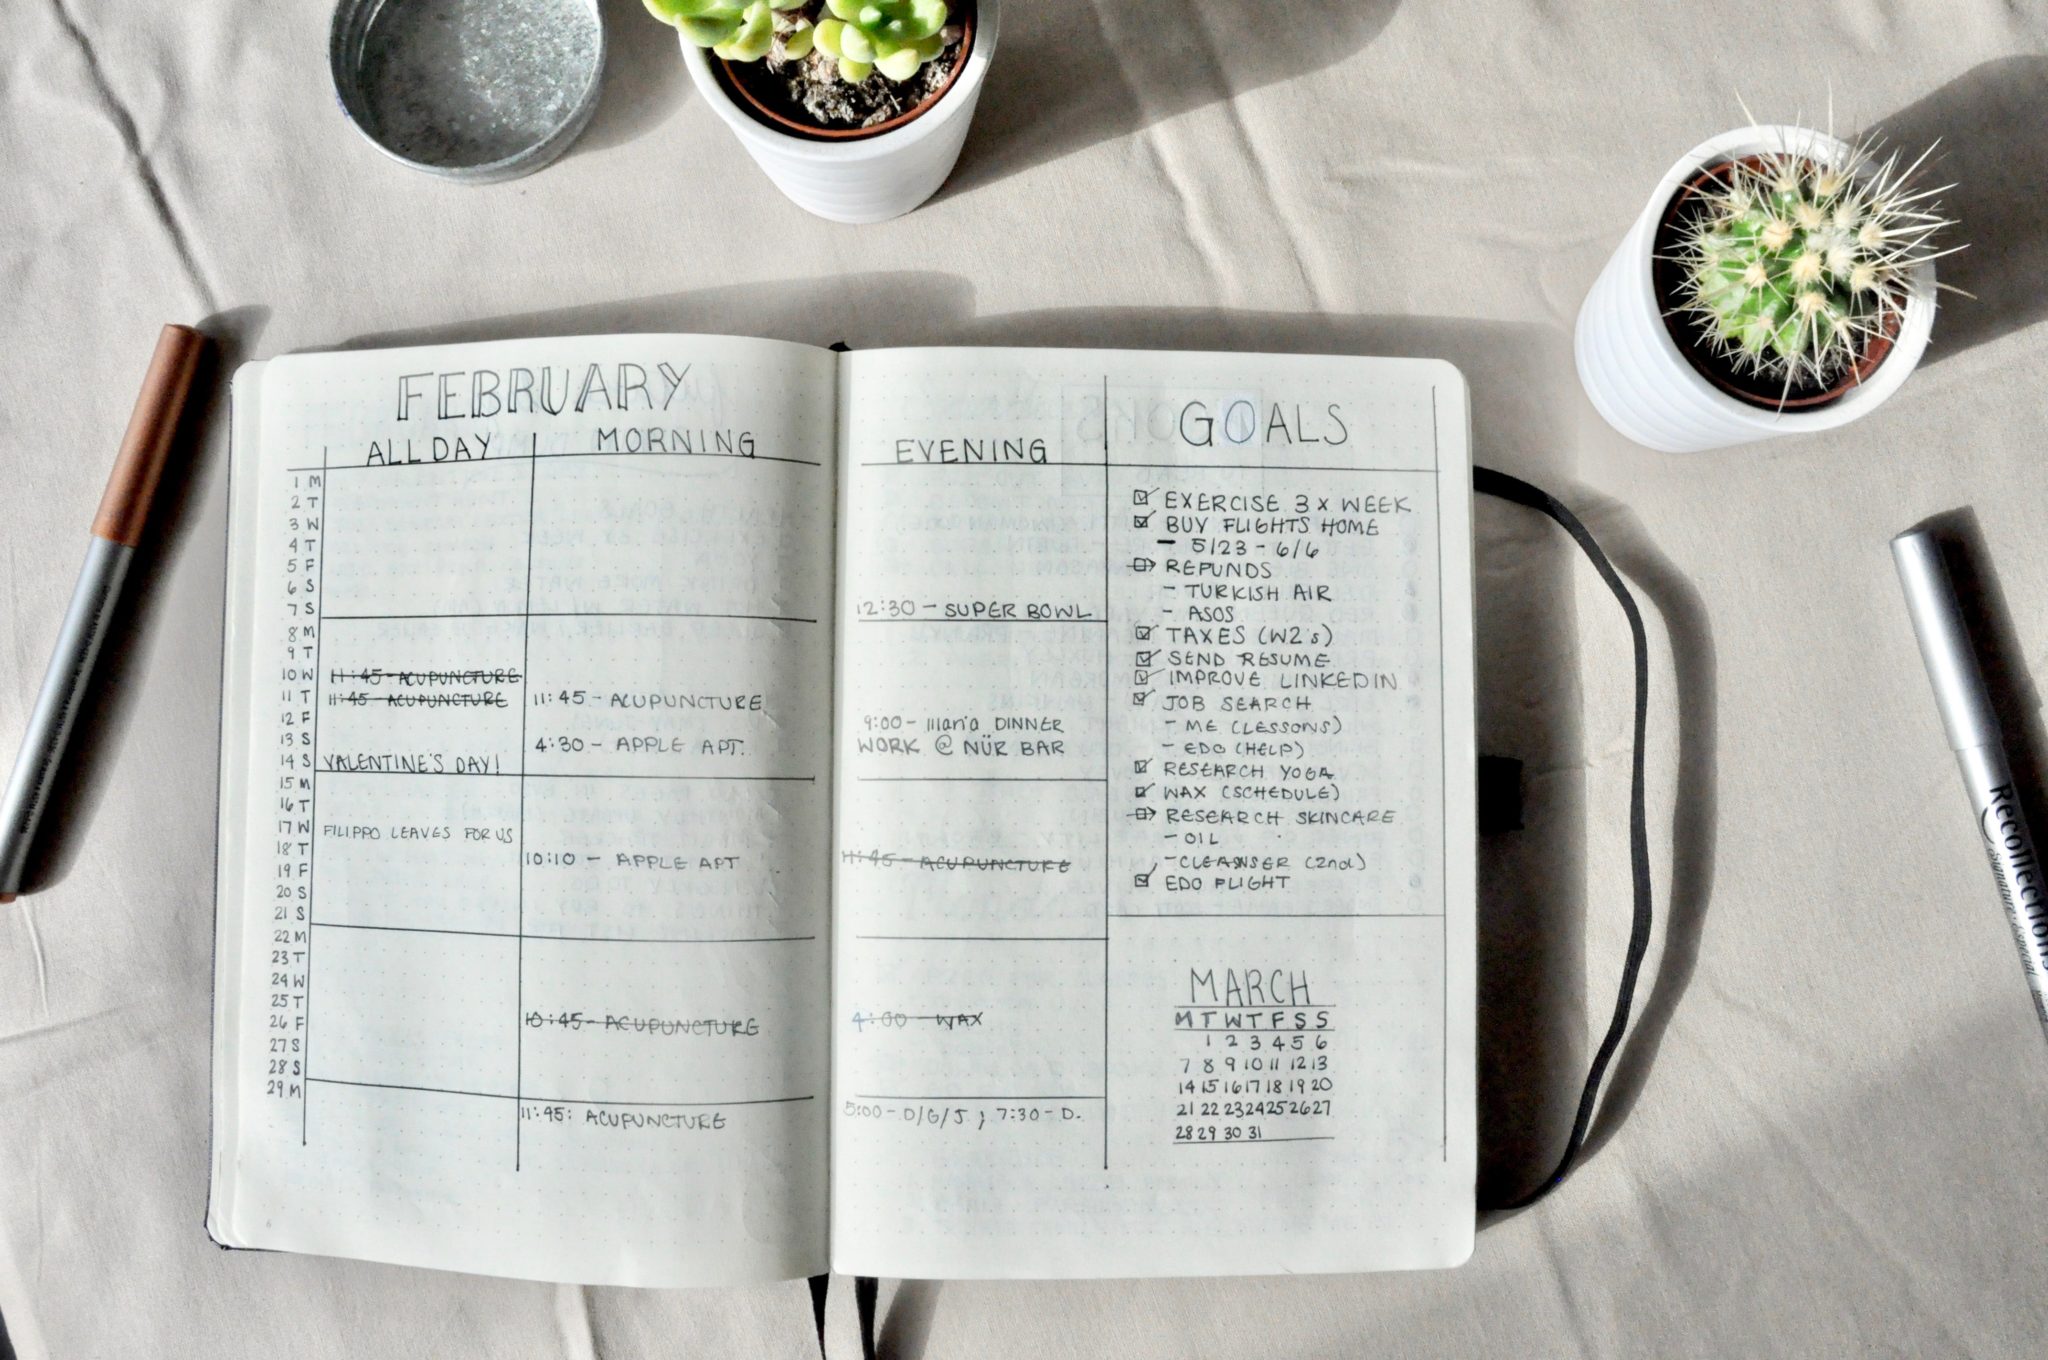 FEBRUARY
ALL DAY
MORNING
1 M
2 T
3 W
4 T
5 F
6 S
7 S
8 M
9 T
10 W 11:45 - ACUPUNCTURE
11 T 11:45 - ACUPUNCTURE 11:45 - ACUPUNCTURE
12 F
13 S 4:30 - APPLE APT.
14 S VALENTINE'S DAY!
15 M
16 T
17 W FILIPPO LEAVES FOR US
18 T 10:10 - APPLE APT
19 F
20 S
21 S
22 M
23 T
24 W
25 T
26 F 10:45 - ACUPUNCTURE
27 S
28 S
29 M
11:45: ACUPUNCTURE
6
EVENING
12:30 - SUPER BOWL
9:00 - maria DINNER
WORK @ NÜR BAR
11:45 - ACUPUNCTURE
4:00 - WAX
5:00 - D/G/J ; 7:30 - D.
GOALS
EXERCISE 3 X WEEK
BUY FLIGHTS HOME
- 5/23 - 6/6
REFUNDS
- TURKISH AIR
- ASOS
TAXES (W2's)
SEND RESUME
IMPROVE LINKEDIN
JOB SEARCH
- ME (LESSONS)
- EDO (HELP)
RESEARCH YOGA
WAX (SCHEDULE)
RESEARCH SKINCARE
- OIL
- CLEANSER (2nd)
EDO FLIGHT
MARCH
M T W T F S S
1 2 3 4 5 6
7 8 9 10 11 12 13
14 15 16 17 18 19 20
21 22 23 24 25 26 27
28 29 30 31
7
Recollections
Signature